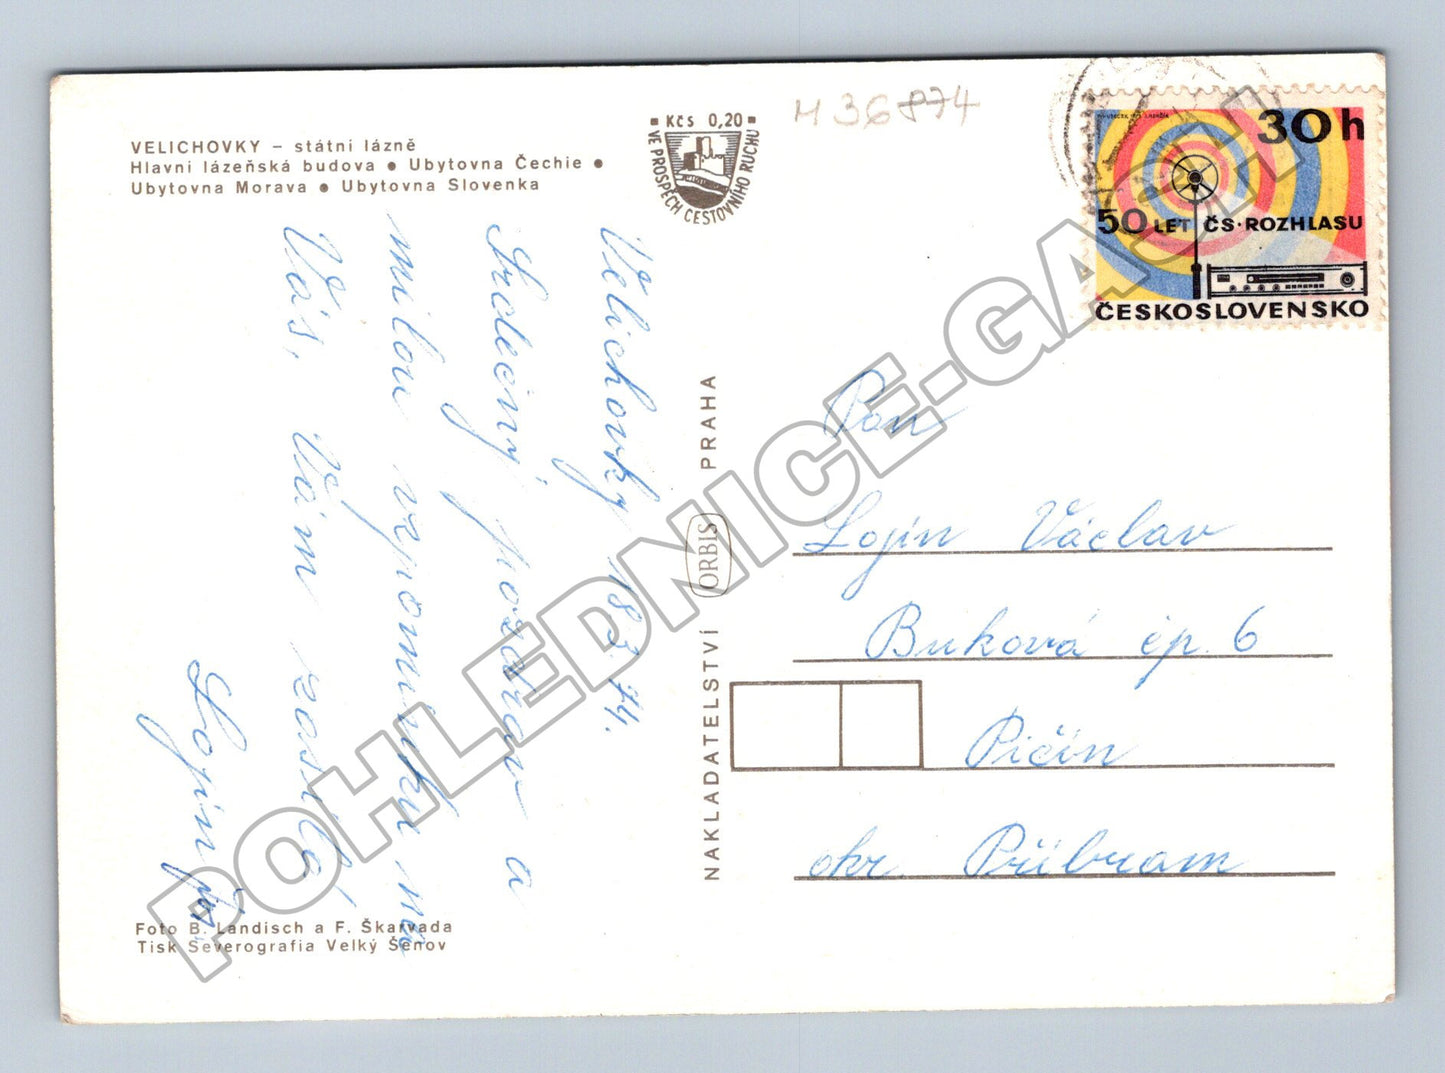 VELICHOVKY – státní lázně
Hlavní lázeňská budova ● Ubytovna Čechie ●
Ubytovna Morava ● Ubytovna Slovenka
Kčs 0,20
VE PROSPĚCH CESTOVNÍHO RUCHU
M 36874
30 h
50 LET ČS·ROZHLASU
ČESKOSLOVENSKO
Velichovky 18.3.74.
Srdečný pozdrav a
milou vzpomínku na
Vás, Vám zasílá
Lojín
NAKLADATELSTVÍ ORBIS PRAHA
Pan
Lojín Václav
Buková čp. 6
Pičín
okr. Příbram
Foto B. Landisch a F. Škarvada
Tisk Severografia Velký Šenov
POHLEDNICE-GASH